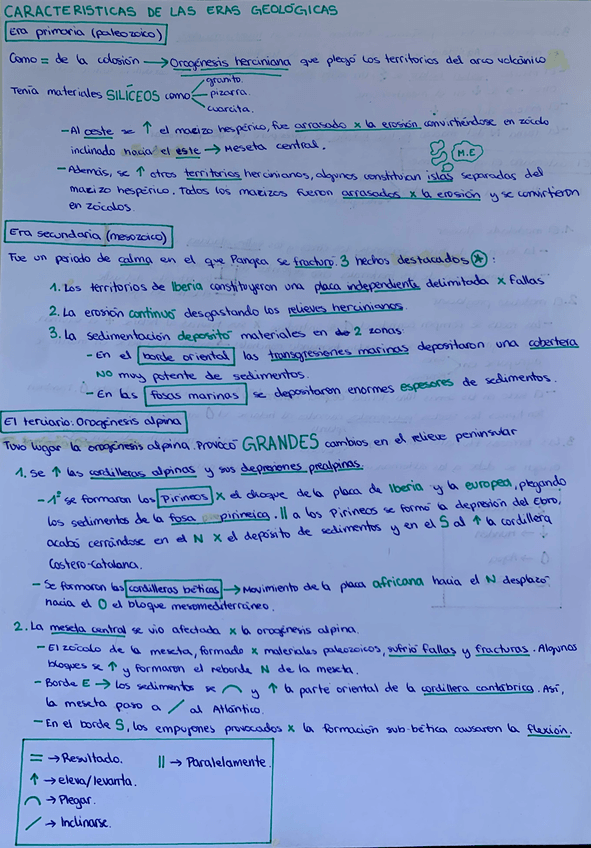 CARACTERISTICAS DE LAS ERAS GEOLÓGICAS
Era primaria (paleozoico)
Como = de la colosión → Orogénesis herciniana que plegó los territorios del arco volcánico
granito.
Tenía materiales SILÍCEOS como pizarra.
cuarcita.
- Al oeste se ↑ el macizo hespérico, fue arrasado x la erosión convirtiéndose en zócalo
inclinado hacia el este → Meseta central.
M.E
- Además, se ↑ otros territorios hercinianos, algunos constituían islas separadas del
macizo hespérico. Todos los macizos fueron arrasados x la erosión y se convirtieron
en zócalos.
Era secundaria (mesozoico)
Fue un periodo de calma en el que Pangea se fracturó. 3 hechos destacados * :
1. Los territorios de Iberia constituyeron una placa independiente delimitada x fallas
2. La erosión continuó desgastando los relieves hercinianos.
3. La sedimentación depositó materiales en 2 zonas
- En el borde oriental las transgresiones marinas depositaron una cobertera
NO muy potente de sedimentos.
- En las fosas marinas se depositaron enormes espesores de sedimentos.
El terciario. Orogénesis alpina
Tuvo lugar la orogénesis alpina. Provocó GRANDES cambios en el relieve peninsular
1. Se ↑ las cordilleras alpinas y sus depresiones prealpinas.
- 1º se formaron los Pirineos x el choque de la placa de Iberia y la europea, plegando
los sedimentos de la fosa pirineica. || a los Pirineos se formó la depresión del Ebro,
acabó cerrándose en el N x el depósito de sedimentos y en el S al ↑ la cordillera
Costero-Catalana.
- Se formaron las cordilleras béticas → Movimiento de la placa africana hacia el N desplazó
hacia el O el bloque mesomediterráneo.
2. La meseta central se vio afectada x la orogénesis alpina.
- El zócalo de la meseta, formado x materiales paleozoicos, sufrió fallas y fracturas. Algunos
bloques se ↑ y formaron el reborde N de la meseta.
- Borde E → Los sedimentos se ⌒ y ↑ la parte oriental de la cordillera cantábrica. Así,
la meseta pasó a / al Atlántico.
- En el borde S, los empujones provocados x la formación sub-bética causaron la flexión.
= → Resultado. || → Paralelamente.
↑ → eleva/levanta.
⌒ → Plegar.
/ → Inclinarse.